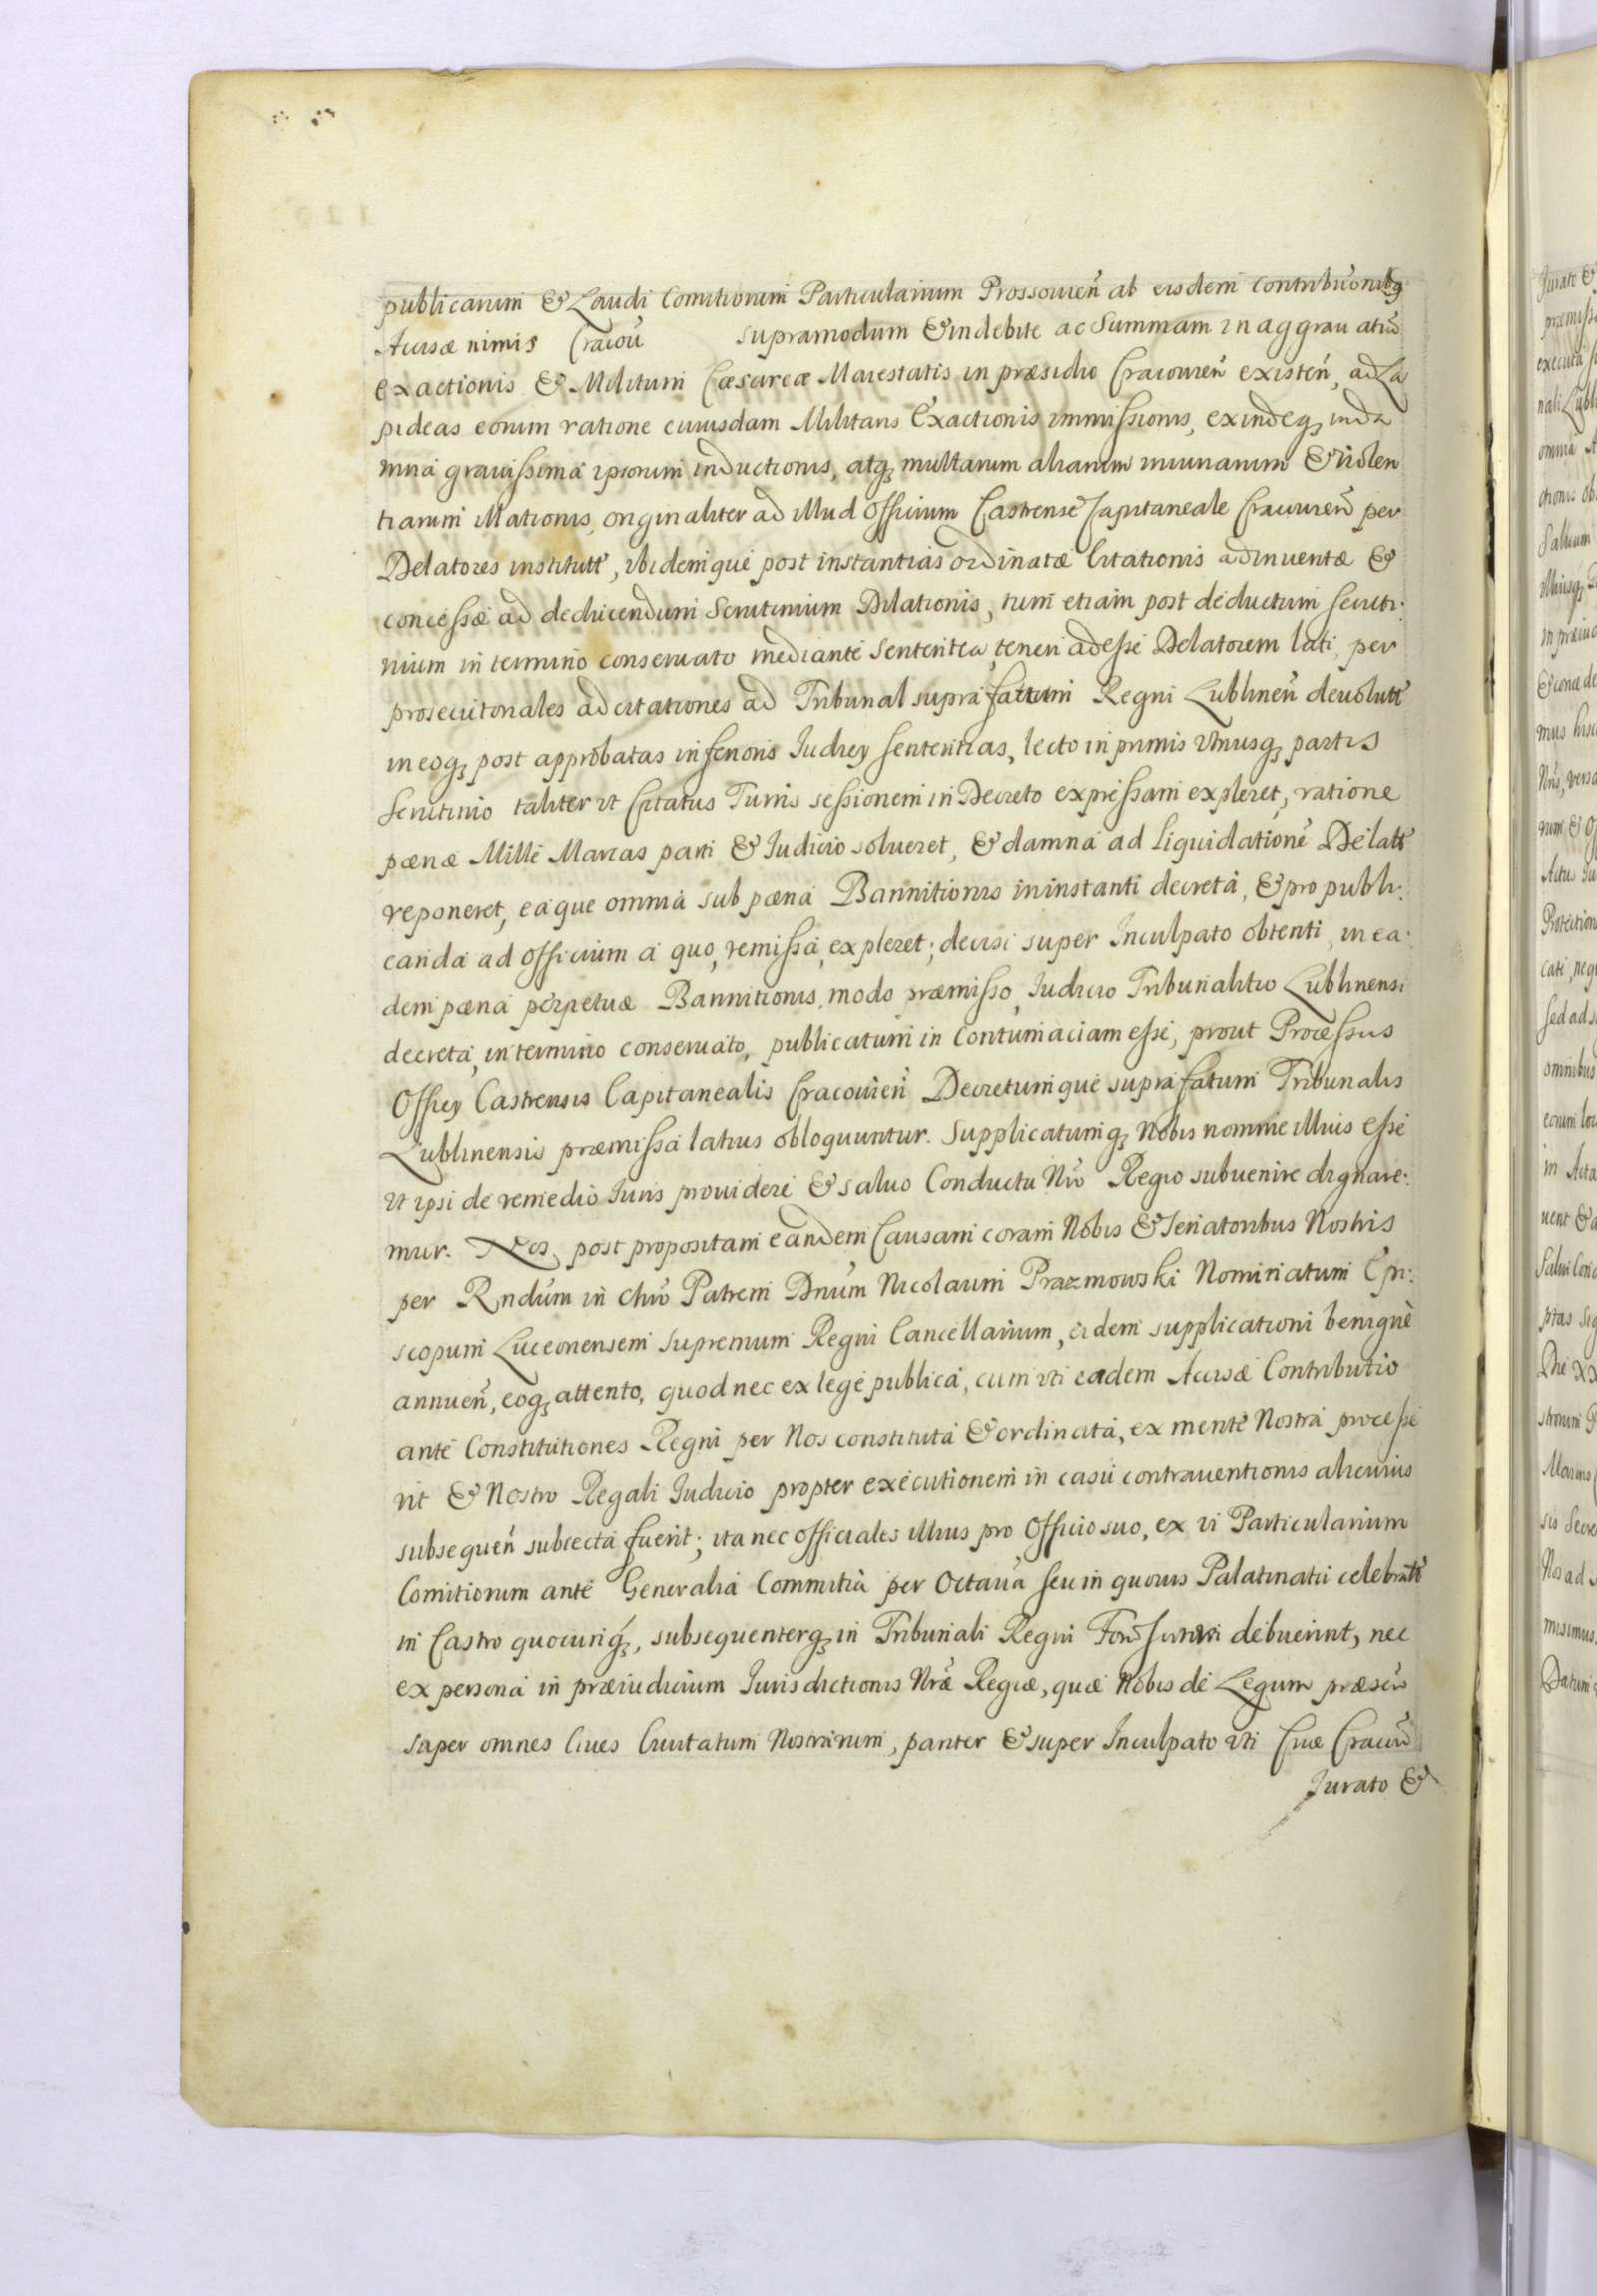 publicarum & Laudi Comitiorum Particularium Prossouień ab eisdem contribuõnibq
Acisæ nimis Cracoũ supramodum & indebite ac Summam in aggrauatiũ
exactionis & Militum Cæsareæ Maiestatis in præsidio Cracouień existeń, ad La
pideas eorum ratione cuiusdam Militaris Exactionis immissionis, exindeq, in da
mna grauissima ipsorum inductionis, atq, multarum aliarum iniuriarum & violen
tiarum illationis, originaliter ad illud Officium Castrense Capitaneale Cracouień per
Delatores institutt, ibidemque post instantias ordinatæ Citationis adinuentæ &
concessæ ad deducendum Scrutinium Dilationis, tum etiam post deductum scruti.
nium in termino conseruato mediante sententia, teneri adesse Delatorem lati, per
prosecutoriales adcitationes ad Tribunal suprafatum Regni Lublineń deuolutt
in eoq, post approbatas inferioris Iudicy sententias, lecto in primis vtriusq, partis
scrutinio taliter vt Citatus Turris sessionem in Decreto expressam expleret, ratione
pænæ Mille Marcas parti & Iudicio solueret, & damna ad liquidatione Delatt
reponeret, eaque omnia sub pæna Bannitionis in instanti decreta, & pro publi.
canda ad officium a quo, remissa, expleret; decisi super Inculpato obtenti, in ea.
dem pæna perpetuæ Bannitionis, modo præmisso, Iudicio Tribunalitio Lublinensi
decreta, in termino conseruato, publicatum in Contumaciam esse, prout Processus
Officy Castrensis Capitanealis Cracouień Decretumque suprafatum Tribunalis
Lublinensis præmissa latius obloquuntur. Supplicatumq, Nobis nomine illius esse
vt ipsi de remedio Iuris prouidere & saluo Conductu Nrõ Regio subuenire dignare.
mur. Nos, post propositam eandem Causam coram Nobis & Senatoribus Nostris
per Rndum in Chrõ Patrem Dnum Nicolaum Prazmowski Nominatum Epi:
scopum Luceonensem Supremum Regni Cancellarium, eidem supplicationi benignè
annueń, eoq, attento, quod nec ex lege publica, cum vti eadem Acisæ Contributio
ante Constitutiones Regni per Nos constituta & ordinata, ex mente Nostra processe
rit & Nostro Regali Iudicio propter executionem in casu contrauentionis alicuius
subsequeń subiecta fuerit; ita nec officiales illius pro Officio suo, ex vi Particularium
Comitiorum ante Generalia Commitia per Octaua seu in quouis Palatinatu celebratt
in Castro quocunq, subsequenterq, in Tribunali Regni debuerint, nec
ex persona in præiudicium Iurisdictionis Nræ Regiæ, quæ Nobis de Legum
super omnes Ciues Ciuitatum Nostrarum, pariter & super Inculpato vti Ciue Cracouń
Iurato &